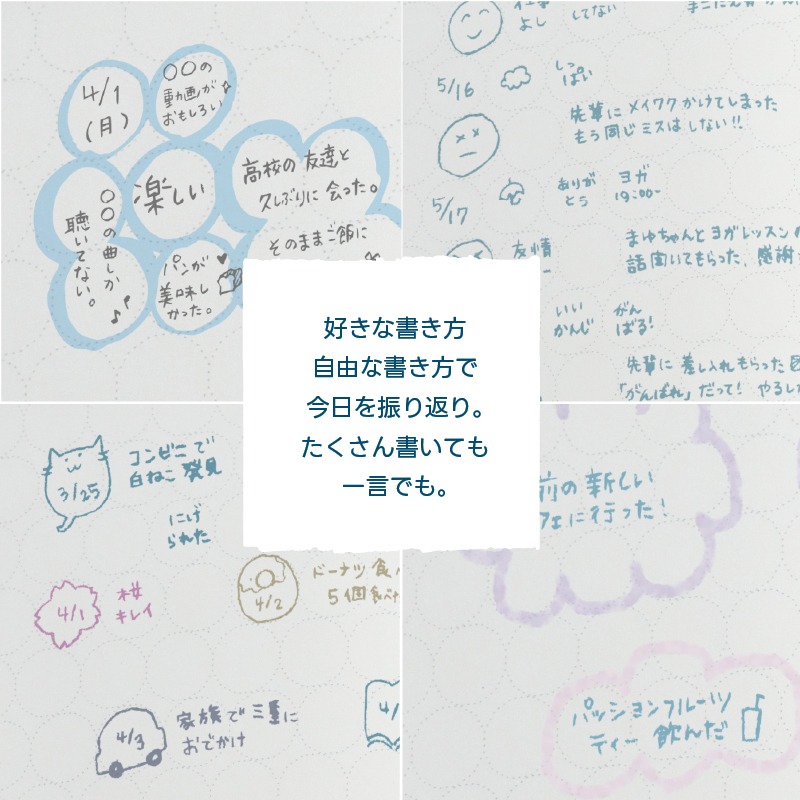 4/1
(月)
〇〇の
動画が
おもしろい
楽しい
高校の友達と
久しぶりに会った。
そのままご飯に
〇〇の曲しか
聴いてない。
パンが
美味し
かった。
よし
してない
5/16
しっ
ぱい
先輩にメイワクかけてしまった
もう同じミスはしない!!
5/17
ありが
とう
ヨガ
19:00-
友情
まゆちゃんとヨガレッスン
話聞いてもらった、感謝
いい
かんじ
がん
ばる!
先輩に差し入れもらった
「がんばれ」だって! やるし
好きな書き方
自由な書き方で
今日を振り返り。
たくさん書いても
一言でも。
3/25
コンビニで
白ねこ発見
にげ
られた
4/1
桜
キレイ
4/2
ドーナツ食
5個食べ
4/3
家族で三重に
おでかけ
4/
前の新しい
フェに行った!
パッションフルーツ
ティー飲んだ